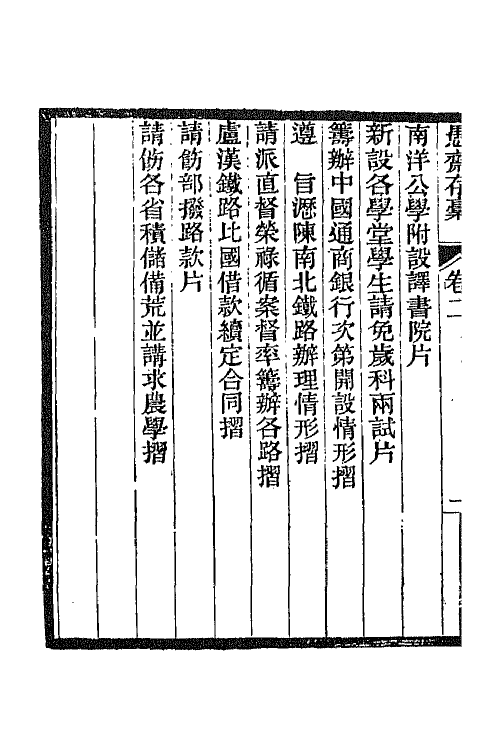 愚齋存稾 卷二 一
南洋公學附設譯書院片
新設各學堂學生請免歲科兩試片
籌辦中國通商銀行次第開設情形摺
遵 旨瀝陳南北鐵路辦理情形摺
請派直督榮祿循案督率籌辦各路摺
盧漢鐵路比國借款續定合同摺
請飭部撥路款片
請飭各省積儲備荒並講求農學摺